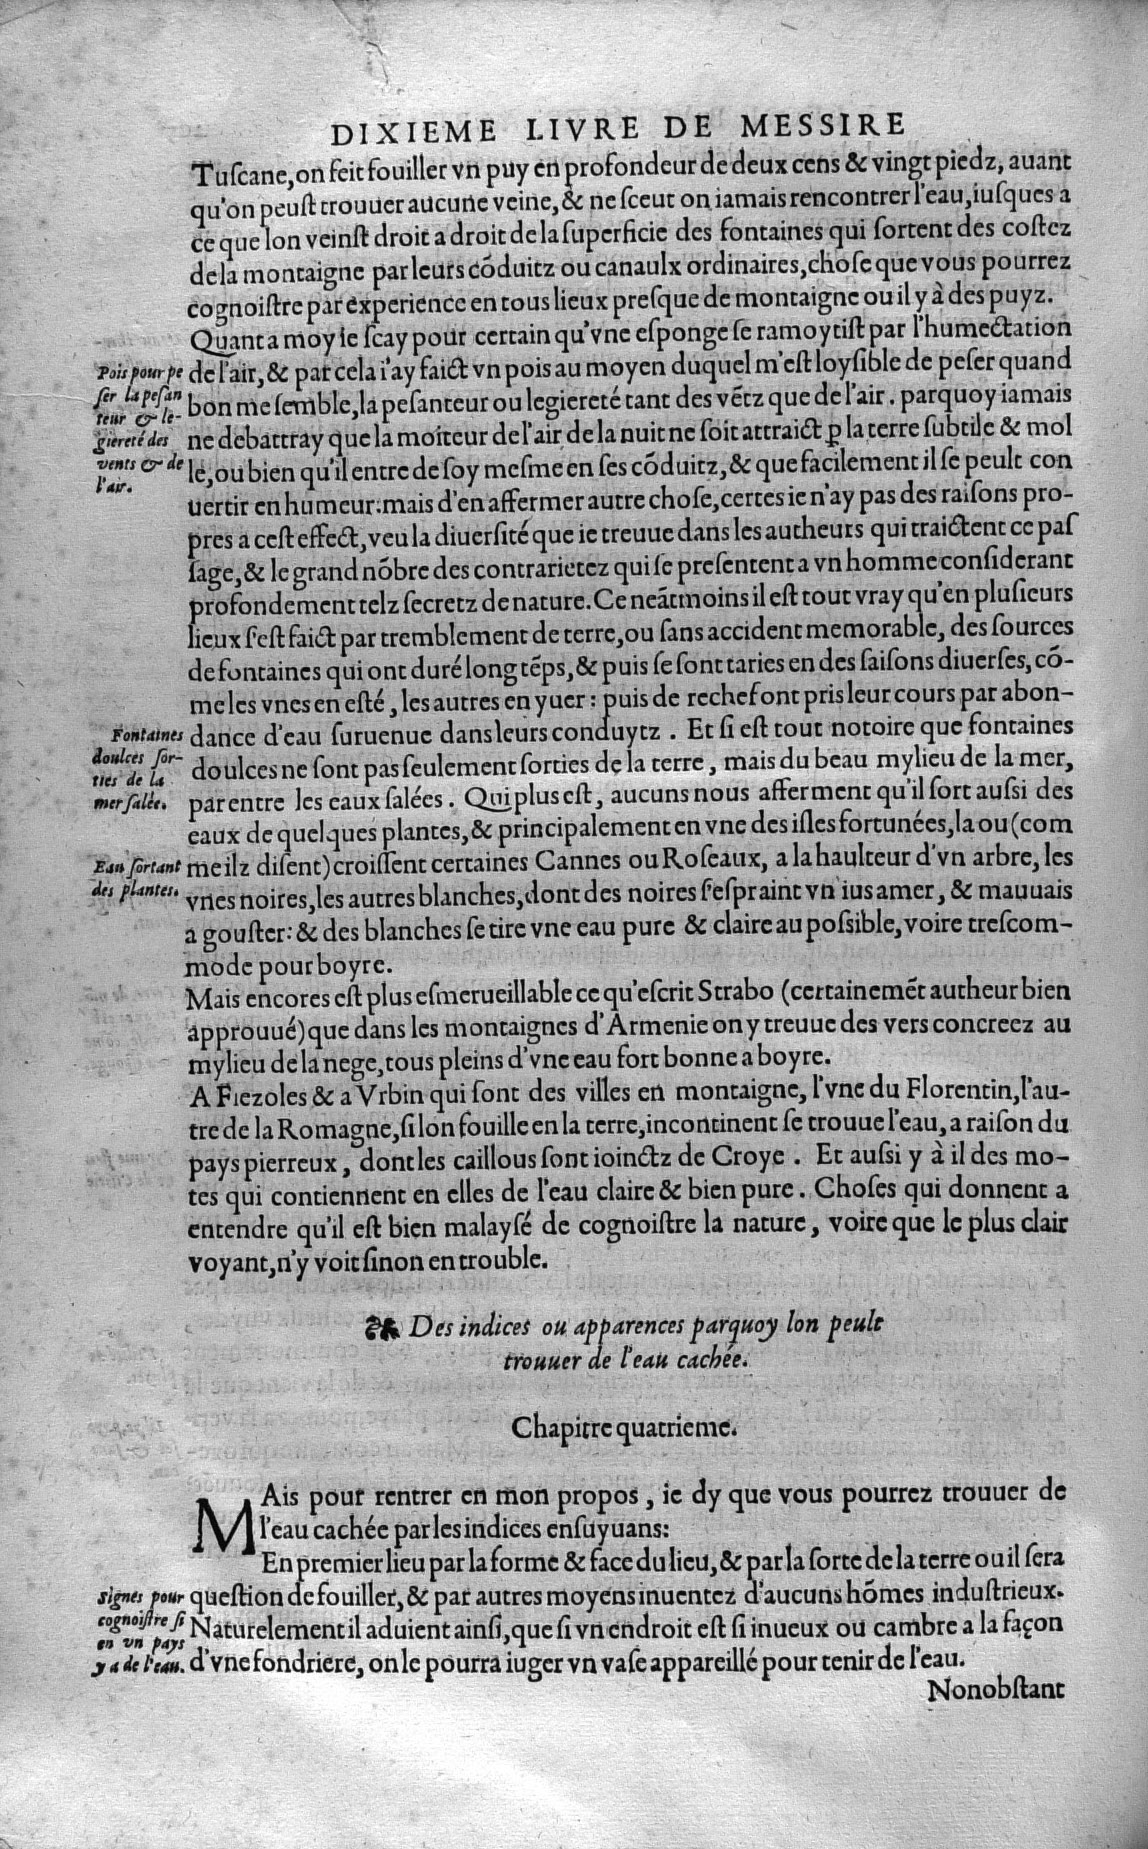 DIXIEME LIVRE DE MESSIRE
Tuſcane, on feit fouiller vn puy en profondeur de deux cens & vingt piedz, auant
qu'on peuſt trouuer aucune veine, & ne ſceut on iamais rencontrer l'eau, iuſques a
ce que lon veinſt droit a droit de la ſuperficie des fontaines qui ſortent des coſtez
de la montaigne par leurs cõduitz ou canaulx ordinaires, choſe que vous pourrez
cognoiſtre par experience en tous lieux preſque de montaigne ou il y à des puyz.
Quant a moy ie ſcay pour certain qu'vne eſponge ſe ramoytiſt par l'humectation
Pois pour pe
ſer la peſan
teur & le-
giereté des
vents & de
l'air.
de l'air, & par cela i'ay faict vn pois au moyen duquel m'eſt loyſible de peſer quand
bon me ſemble, la peſanteur ou legiereté tant des vẽtz que de l'air. parquoy iamais
ne debattray que la moiteur de l'air de la nuit ne ſoit attraict ꝑ la terre ſubtile & mol
le, ou bien qu'il entre de ſoy meſme en ſes cõduitz, & que facilement il ſe peult con
uertir en humeur: mais d'en affermer autre choſe, certes ie n'ay pas des raiſons pro-
pres a ceſt effect, veu la diuerſité que ie treuue dans les autheurs qui traictent ce paſ
ſage, & le grand nõbre des contrarietez qui ſe preſentent a vn homme conſiderant
profondement telz ſecretz de nature. Ce neãtmoins il eſt tout vray qu'en pluſieurs
lieux s'eſt faict par tremblement de terre, ou ſans accident memorable, des ſources
de fontaines qui ont duré long tẽps, & puis ſe ſont taries en des ſaiſons diuerſes, cõ-
me les vnes en eſté, les autres en yuer: puis de rechef ont pris leur cours par abon-
Fontaines
doulces ſor-
ties de la
mer ſalée.
dance d'eau ſuruenue dans leurs conduytz. Et ſi eſt tout notoire que fontaines
doulces ne ſont pas ſeulement ſorties de la terre, mais du beau mylieu de la mer,
par entre les eaux ſalées. Qui plus eſt, aucuns nous afferment qu'il ſort auſſi des
eaux de quelques plantes, & principalement en vne des iſles fortunées, la ou (com
Eau ſortant
des plantes.
me ilz diſent) croiſſent certaines Cannes ou Roſeaux, a la haulteur d'vn arbre, les
vnes noires, les autres blanches, dont des noires s'eſpraint vn ius amer, & mauuais
a gouſter: & des blanches ſe tire vne eau pure & claire au poſſible, voire treſcom-
mode pour boyre.
Mais encores eſt plus eſmerueillable ce qu'eſcrit Strabo (certainemẽt autheur bien
approuué) que dans les montaignes d'Armenie on y treuue des vers concreez au
mylieu de la nege, tous pleins d'vne eau fort bonne a boyre.
A Fiezoles & a Vrbin qui ſont des villes en montaigne, l'vne du Florentin, l'au-
tre de la Romagne, ſi lon fouille en la terre, incontinent ſe trouue l'eau, a raiſon du
pays pierreux, dont les caillous ſont ioinctz de Croye. Et auſſi y à il des mo-
tes qui contiennent en elles de l'eau claire & bien pure. Choſes qui donnent a
entendre qu'il eſt bien malayſé de cognoiſtre la nature, voire que le plus clair
voyant, n'y voit ſinon en trouble.
Des indices ou apparences parquoy lon peult
trouuer de l'eau cachée.
Chapitre quatrieme.
MAis pour rentrer en mon propos, ie dy que vous pourrez trouuer de
l'eau cachée par les indices enſuyuans:
En premier lieu par la forme & face du lieu, & par la ſorte de la terre ou il ſera
Signes pour
cognoiſtre ſi
en vn pays
y a de l'eau.
queſtion de fouiller, & par autres moyens inuentez d'aucuns hõmes induſtrieux.
Naturelement il aduient ainſi, que ſi vn endroit eſt ſi inueux ou cambre a la façon
d'vne fondriere, on le pourra iuger vn vaſe appareillé pour tenir de l'eau.
Nonobſtant